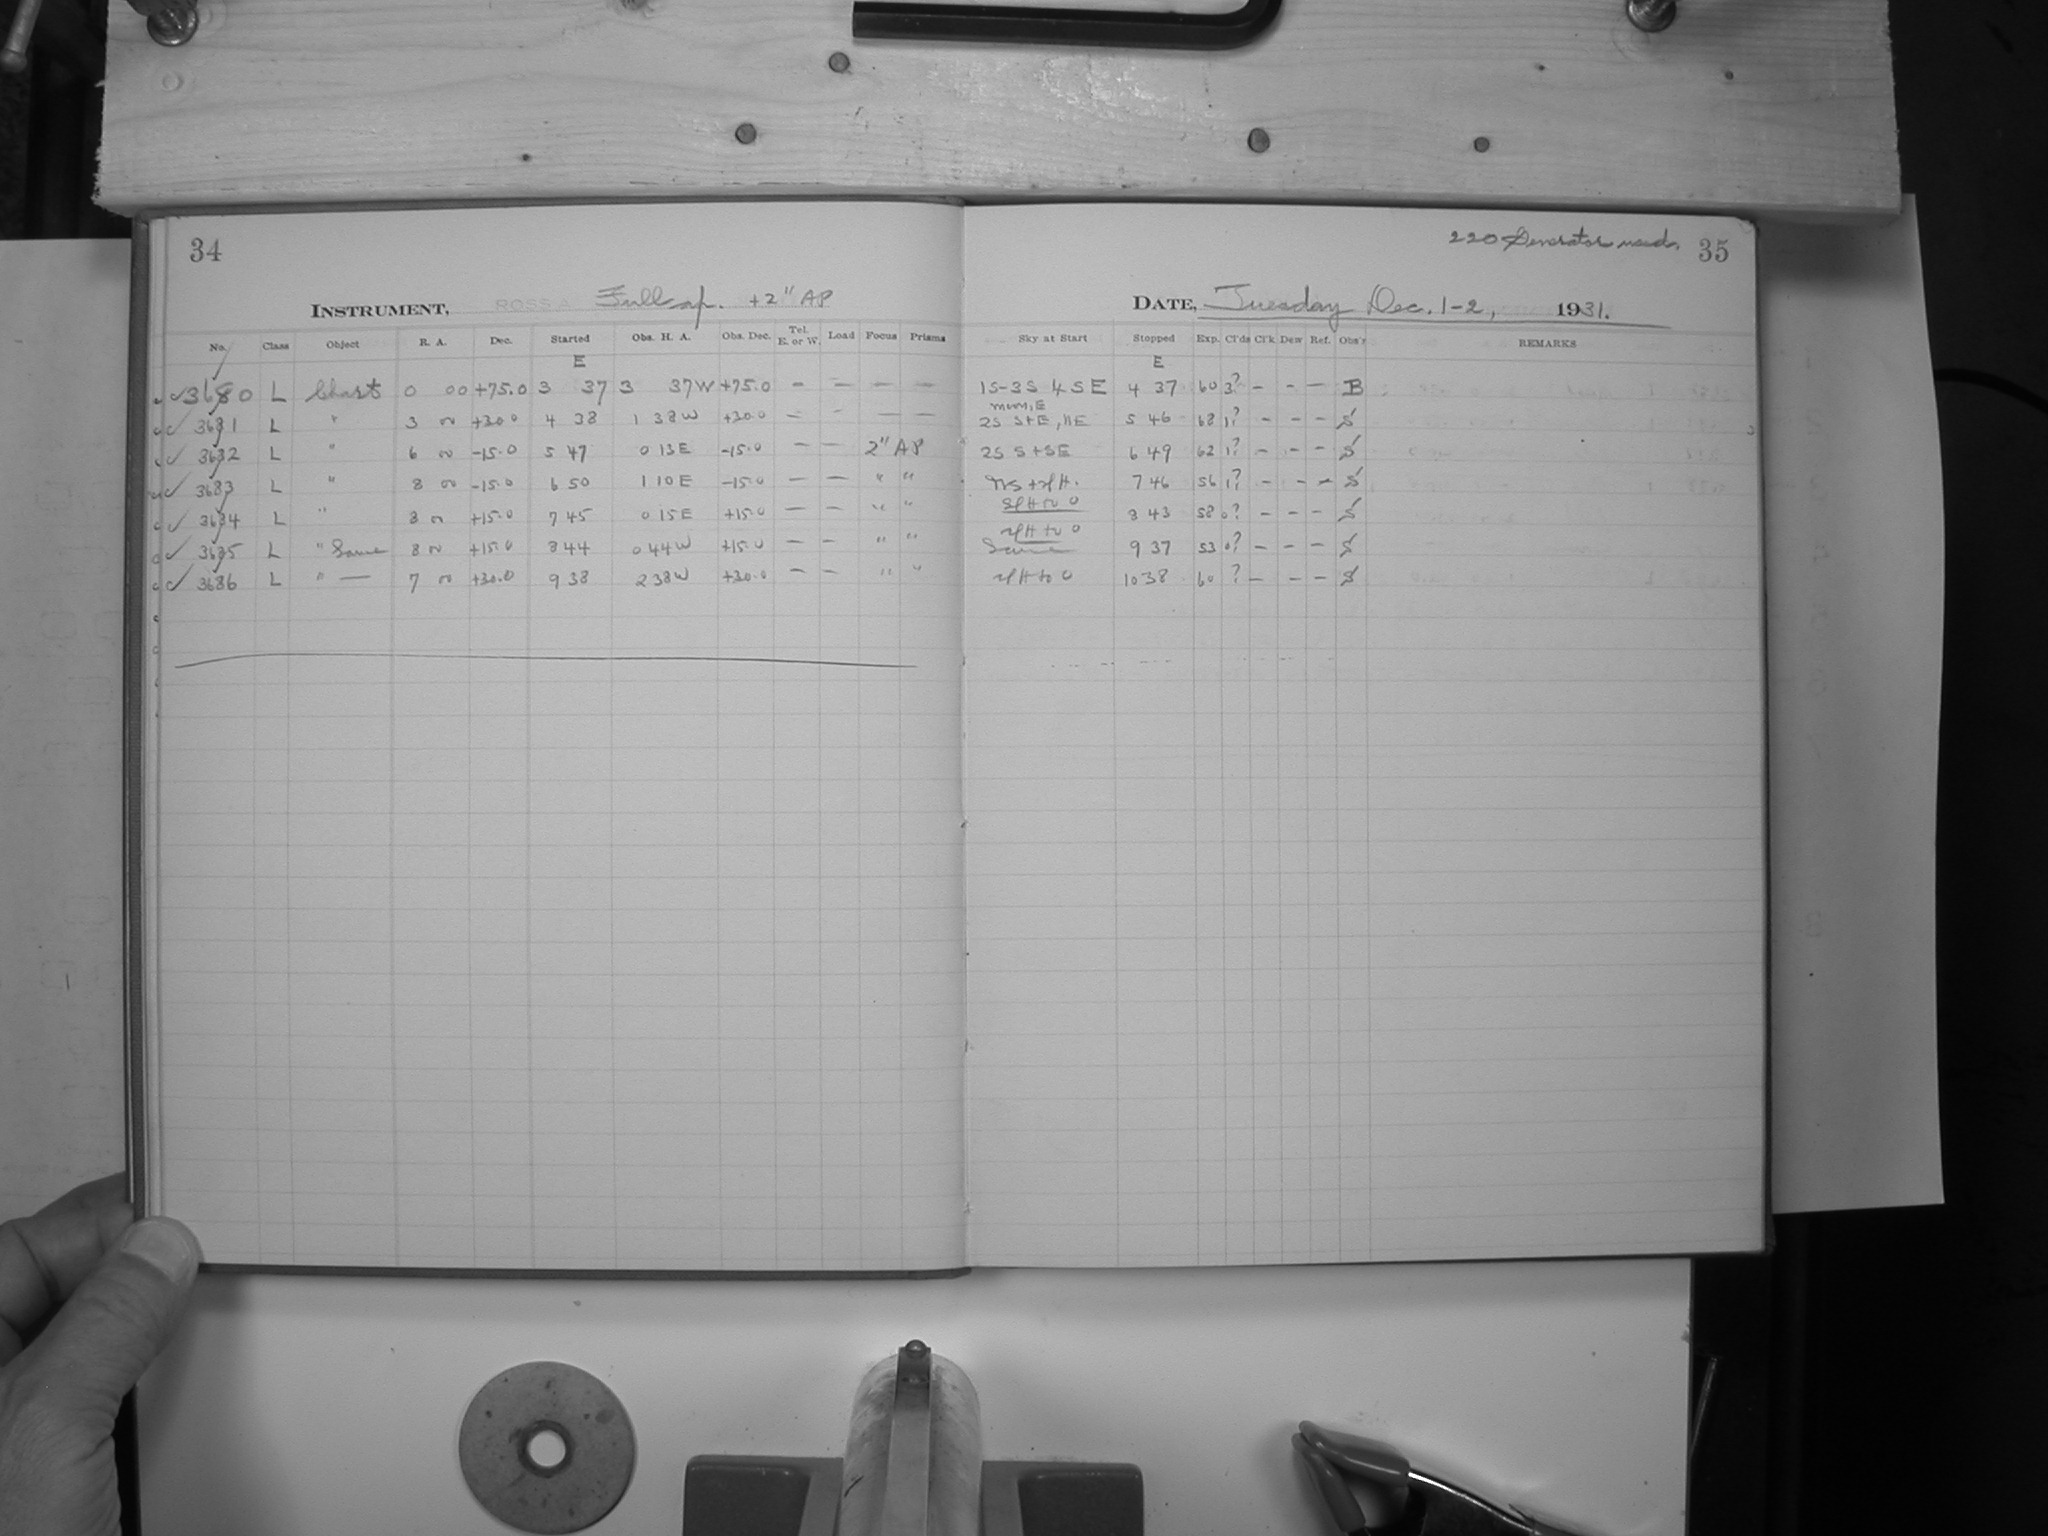 34
INSTRUMENT, ROSS A Full ap. +2" AP
No. Class Object R. A. Dec. Started Obs. H. A. Obs. Dec. Tel. E. or W. Load Focus Prisms
E
✓ 3680 L Chart 0 00 +75.0 3 37 3 37W +75.0 — — — —
✓ 3681 L " 3 00 +30.0 4 38 1 38W +30.0 — - — —
✓ 3682 L " 6 00 -15.0 5 47 0 13E -15.0 — — 2" AP
✓ 3683 L " 8 00 -15.0 6 50 1 10E -15.0 — — " "
✓ 3684 L " 8 00 +15.0 7 45 0 15E +15.0 — — " "
✓ 3685 L " Same 8 00 +15.0 8 44 0 44W +15.0 — — " "
✓ 3686 L " — 7 00 +30.0 9 38 2 38W +30.0 — — " "
220 Generator used. 35
DATE, Tuesday Dec. 1-2, 1931.
Sky at Start Stopped Exp. Cl'ds Cl'k Dew Ref. Obs'r REMARKS
E
1S-3S 4 S E 4 37 60 3? — — — B
2S S+E, NE 5 46 68 1? — — — S
2S S+SE 6 49 62 1? — — — S
7 46 56 1? — — — S
8 43 58 0? — — — S
Same 9 37 53 0? — — — S
10 38 60 ? — — — S